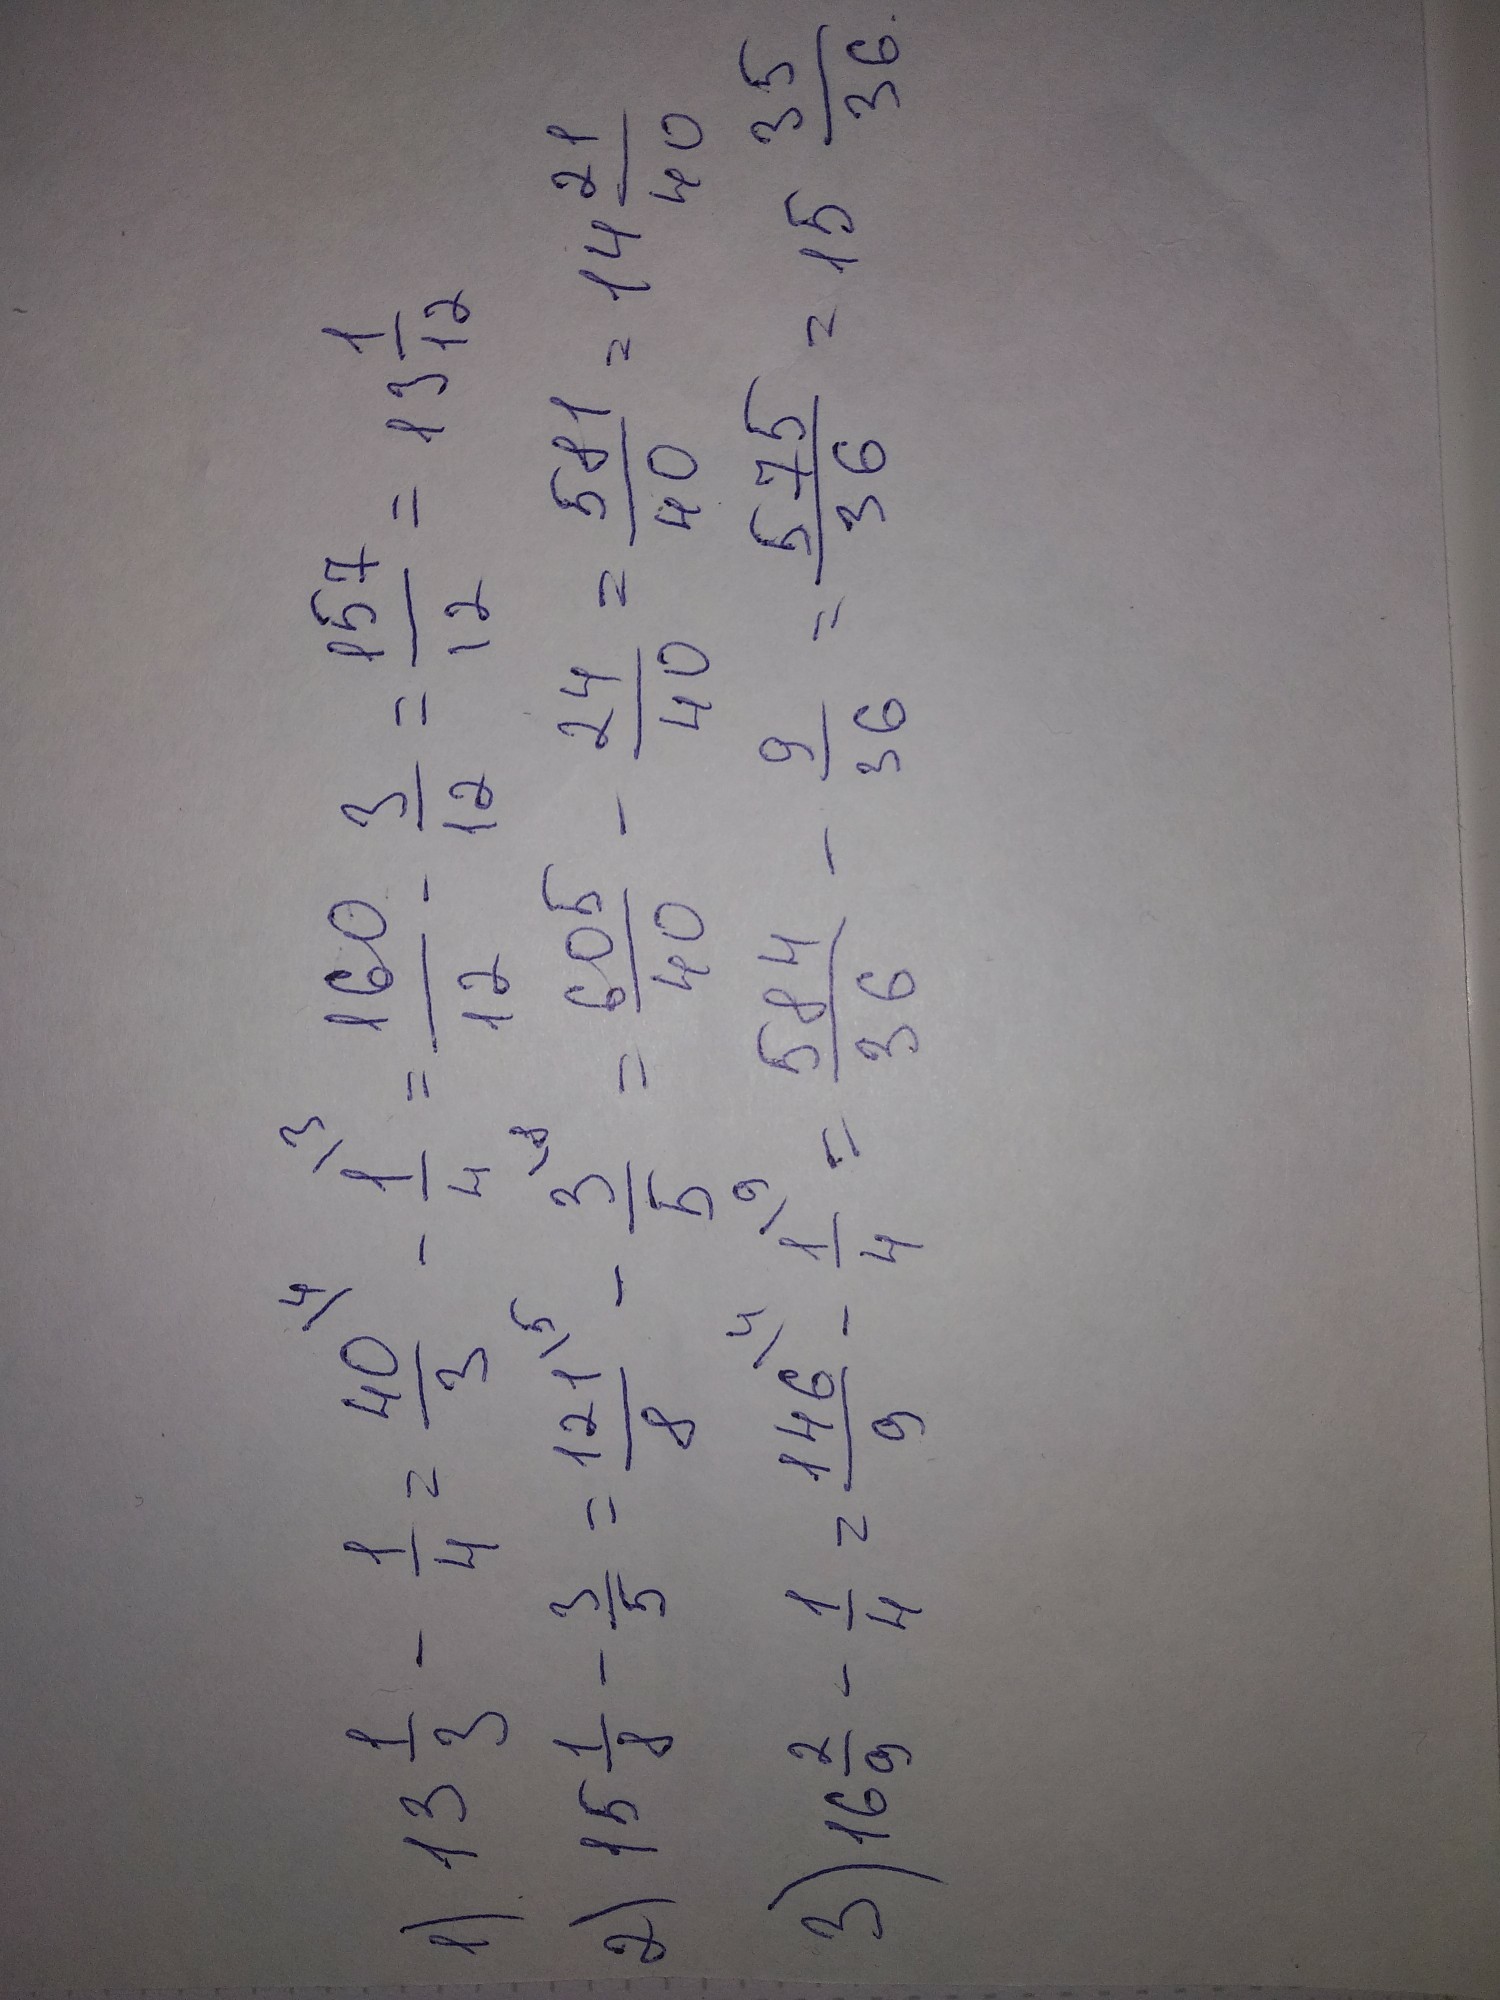 1) 13 1/3 - 1/4 = 40/3 \4 - 1/4 \3 = 160/12 - 3/12 = 157/12 = 13 1/12
2) 15 1/8 - 3/5 = 121/8 \5 - 3/5 \8 = 605/40 - 24/40 = 581/40 = 14 21/40
3) 16 2/9 - 1/4 = 146/9 \4 - 1/4 \9 = 584/36 - 9/36 = 575/36 = 15 35/36.